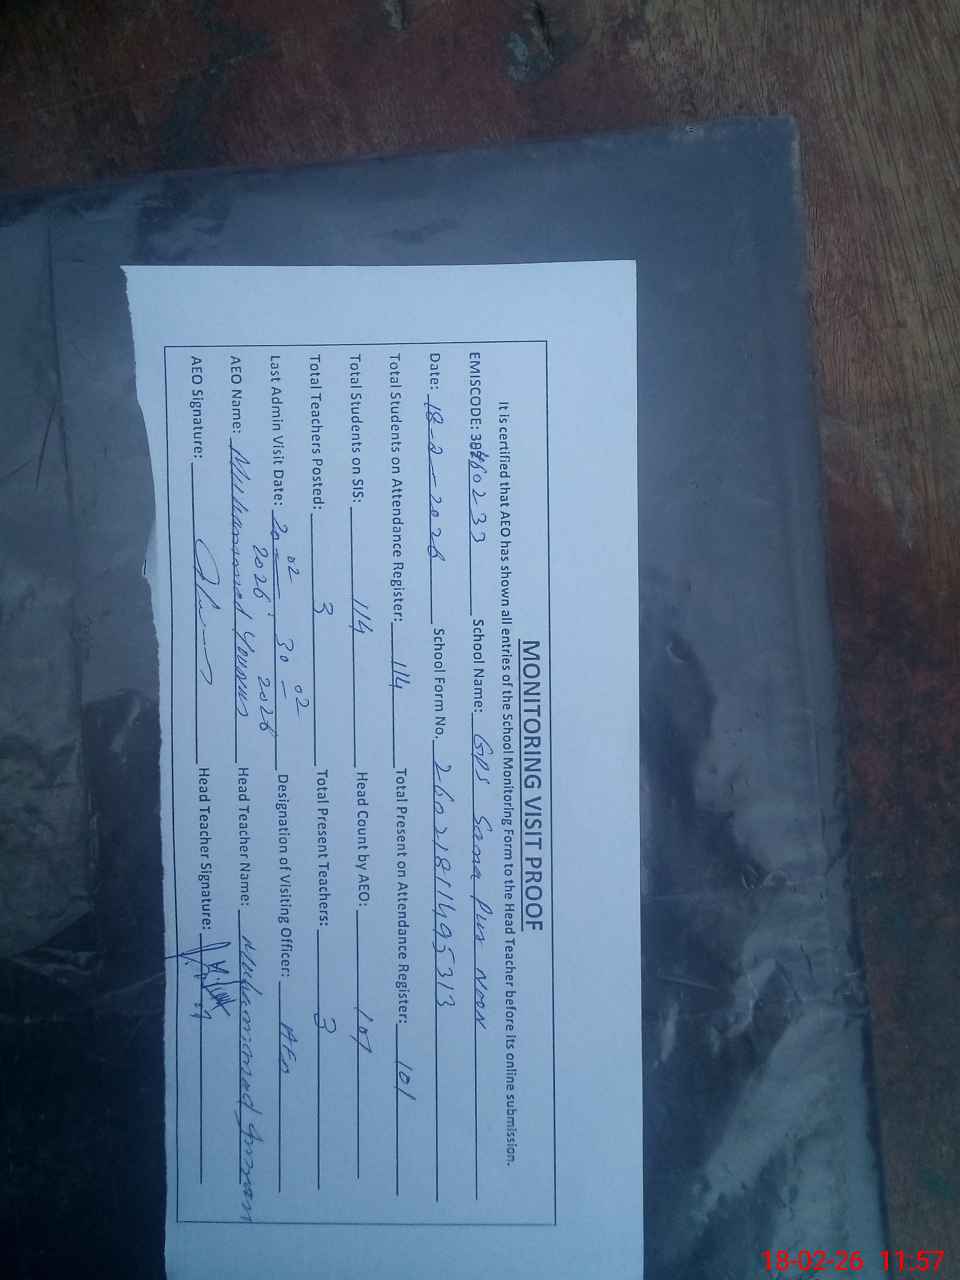 MONITORING VISIT PROOF
It is certified that AEO has shown all entries of the School Monitoring Form to the Head Teacher before its online submission.
EMISCODE: School Name: GPS Sana Pur Noon
Date: 18-2-2026 School Form No. 26021811495313
Total Students on Attendance Register: 114 Total Present on Attendance Register: 101
Total Students on SIS: 114 Head Count by AEO: 101
Total Teachers Posted: 3 Total Present Teachers: 3
Last Admin Visit Date: 20-02-2026, 30-02-2026 Designation of Visiting Officer: AEO
AEO Name: Muhammad Younus Head Teacher Name: Muhammad
AEO Signature: Head Teacher Signature:
18-02-26 11:57